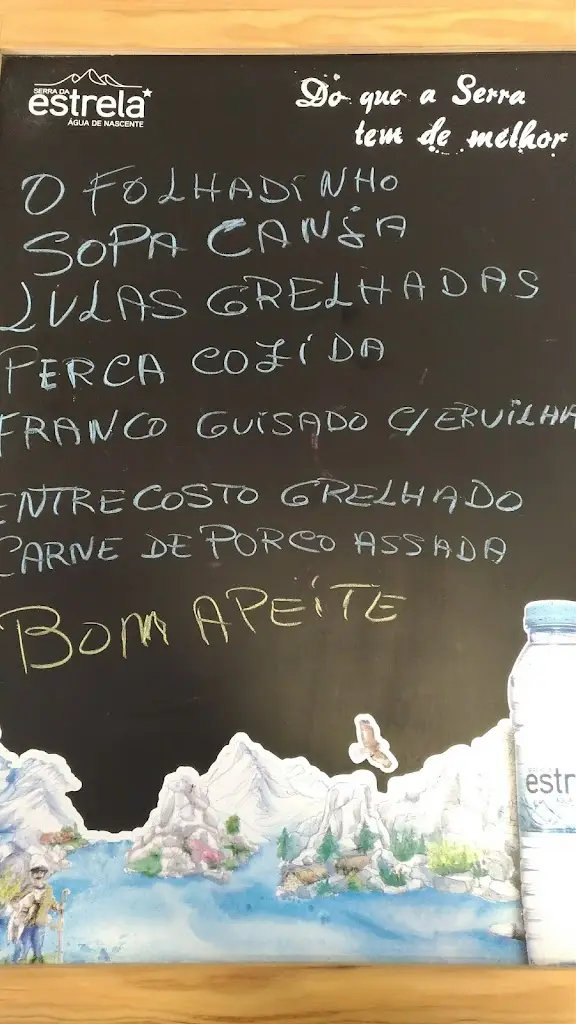 SERRA DA
estrela
ÁGUA DE NASCENTE
Do que a Serra
tem de melhor
O FOLHADINHO
SOPA CANJA
LULAS GRELHADAS
PERCA COZIDA
FRANCO GUISADO C/ERVILHA
ENTRECOSTO GRELHADO
CARNE DE PORCO ASSADA
BOM APEITE
estr